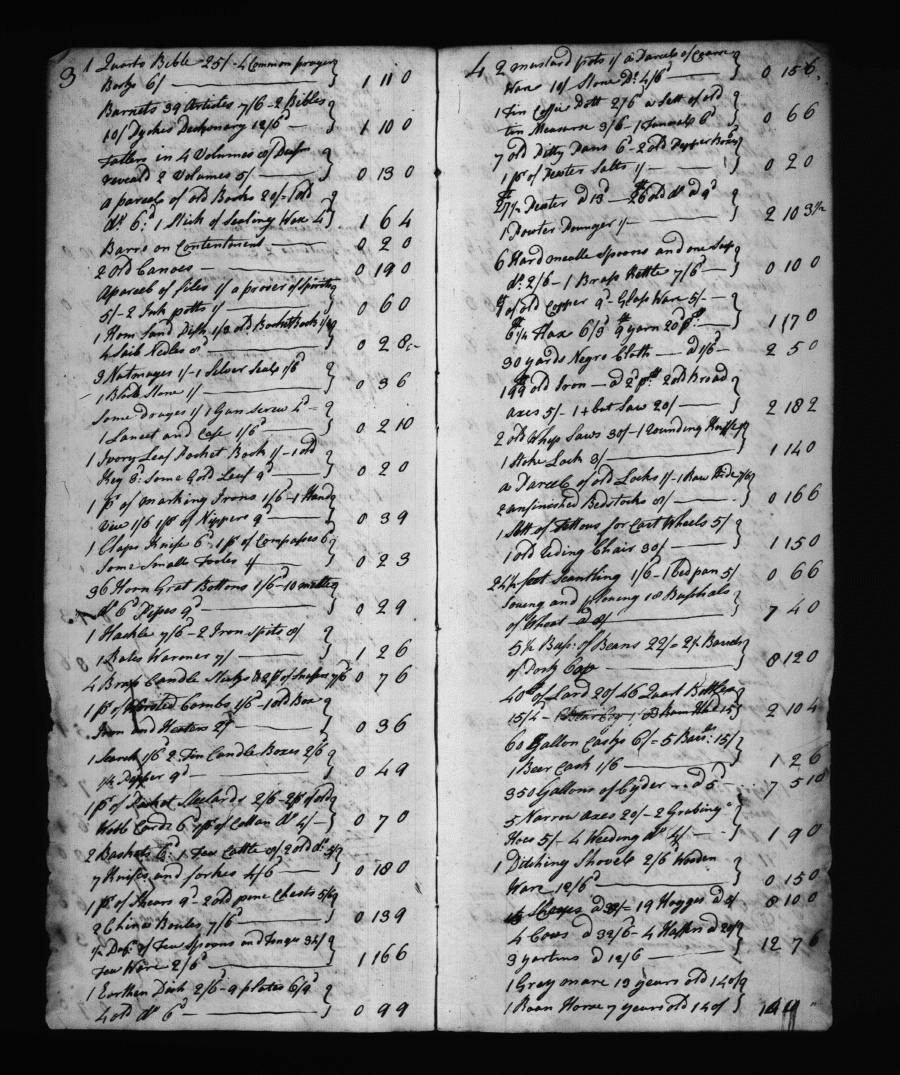 3
1 Quarto Bible 25/- 4 Common prayer
Books 6/ 1 11 0
Barnets 39 Articles 7/6 - 2 Bibles
10/ Dyches Dictionary 12/6 1 10 0
in 4 Volumes 8/
reveald 2 Volumes 5/ 0 13 0
a parcele of old Books 20/- 1 old
do. 6d: 1 Stick of Sealing Wax 4d 1 6 4
Barro on Contentment 0 2 0
2 old Canoes 0 19 0
A parcel of files 1/ a prover of Spirits
5/- 2 Ink potts 1/ 0 6 0
1 Horn Sand Dish 1/8 old Pocket Book
Nedles 8d 0 2 8
3 Nutmages 1/- 1 Silver Seale 1/6
1 Block Stone 1/ 0 3 6
Some Drages 1/ 1 Gun Screw 4d
1 Lancet and Case 1/6 0 2 10
1 Ivory Leaf Pocket Book 1/- 1 old
Key 3d: Some Gold Leaf 9d 0 2 0
1 pr of marking Irons 1/6 - 1 Hand
Vice 1/6 1 pr of Nippers 9d 0 3 9
1 Clasp Knife 6d 1 pr of Compasses 6d
Some Smalle Tooles 1/ 0 2 3
36 Horn Grat Bottons 1/6 - 10
do 6d Pipes 9d 0 2 9
1 Hackle 7/6 - 2 Iron spits 8/
1 Plates Warmer 7/ 1 2 6
4 Brass Candle Sticks & 2 pr of Snufers 7/6 0 7 6
1 pr of Worsted Combs 1/6 - 1 old Box
Iron and Heaters 2/ 0 3 6
1 Search 1/6 2 Tin Candle Boxes 2/6
1/4 Pepper 9d 0 4 9
1 pr of Pocket Steelards 2/6 - 2 pr of old
Wool Cards 6d 1 pr of Cotton do 4/ 0 7 0
2 Baskets 1 Tea Cattle 8/ 2 old do.
7 Knifes and forkes 4/6 0 18 0
1 pr of Shears 9d - 2 old pine Chests
2 China Boules 7/6 0 13 9
1/2 Dos. of Tea Spoons and Tongs
Tea Ware 2/6 1 16 6
1 Earthen Dish 2/6 - 9 plates 6/9
4 old do 6d 0 9 9
4
2 mustard pots 1/ a Parcele of Coarse
Ware 10/ Stone Do. 4/6 0 15 6
1 Tin Coffie Pott 2/6 a Sett of old
tin Measures 3/6 - 1 6d 0 6 6
7 old Patty Pans 6d - 2 old Pepper Boxes
1 pr of Pewter Salts 1/ 0 2 0
Pewter @ 13d 26 old do @ 9d
1 Powter 1/ 2 10 3 1/2
6 Hard mealle Spoons and one Soop
do: 2/6 - 1 Brass Kettle 7/6 0 10 0
of old Copper 9d - Glass Ware 5/-
6 1/4 Flax 6/3 9 yarn 20d pr 1 17 0
30 yards Negro Cloth @ 1/6 2 5 0
199 old Iron @ 2d 2 old Broad
axes 5/- 1 + Cut Saw 20/ 2 18 2
2 old Whip Saws 30/- 1 Rounding Knife
1 Stoke Lock 3/ 1 14 0
a Parcele of old Locks 1/- 1 Raw Hide 7/6
2 unfinished Bedstocks 8/ 0 16 6
1 Sett of Fellows for Cart Wheels 5/
1 old Riding Chair 30/ 1 15 0
24 1/2 feet Scantling 1/6 - 1 bed pan 5/ 0 6 6
Soweng and 18 Bushals
of Wheat @ 8/ 7 4 0
5 1/2 Bus: of Beans 22/- 2 1/2 Barrels
of Pork 8 12 0
40 of Lard 20/ 46 Quart Bottles
15/4 2 10 4
60 Gallon Casks 6/= 5 Barrs: 15/
1 Beer Cask 1/6 1 2 6
350 Gallons of Cyder @ 5d 7 5 10
5 Narrow Axes 20/- 2 Grubing
Hoes 5/- 4 Weeding do 4/ 1 9 0
1 Ditching Shovele 2/6 Wooden
Ware 12/6 0 15 0
Sheepes @ 19 Hogges @ 5/ 8 10 0
4 Cows @ 32/6 - 4 Haffers @ 20/
3 yearlins @ 12/6 12 7 6
1 Grey mare 13 years old 140/
1 Roan Horse 7 years old 140/ 14